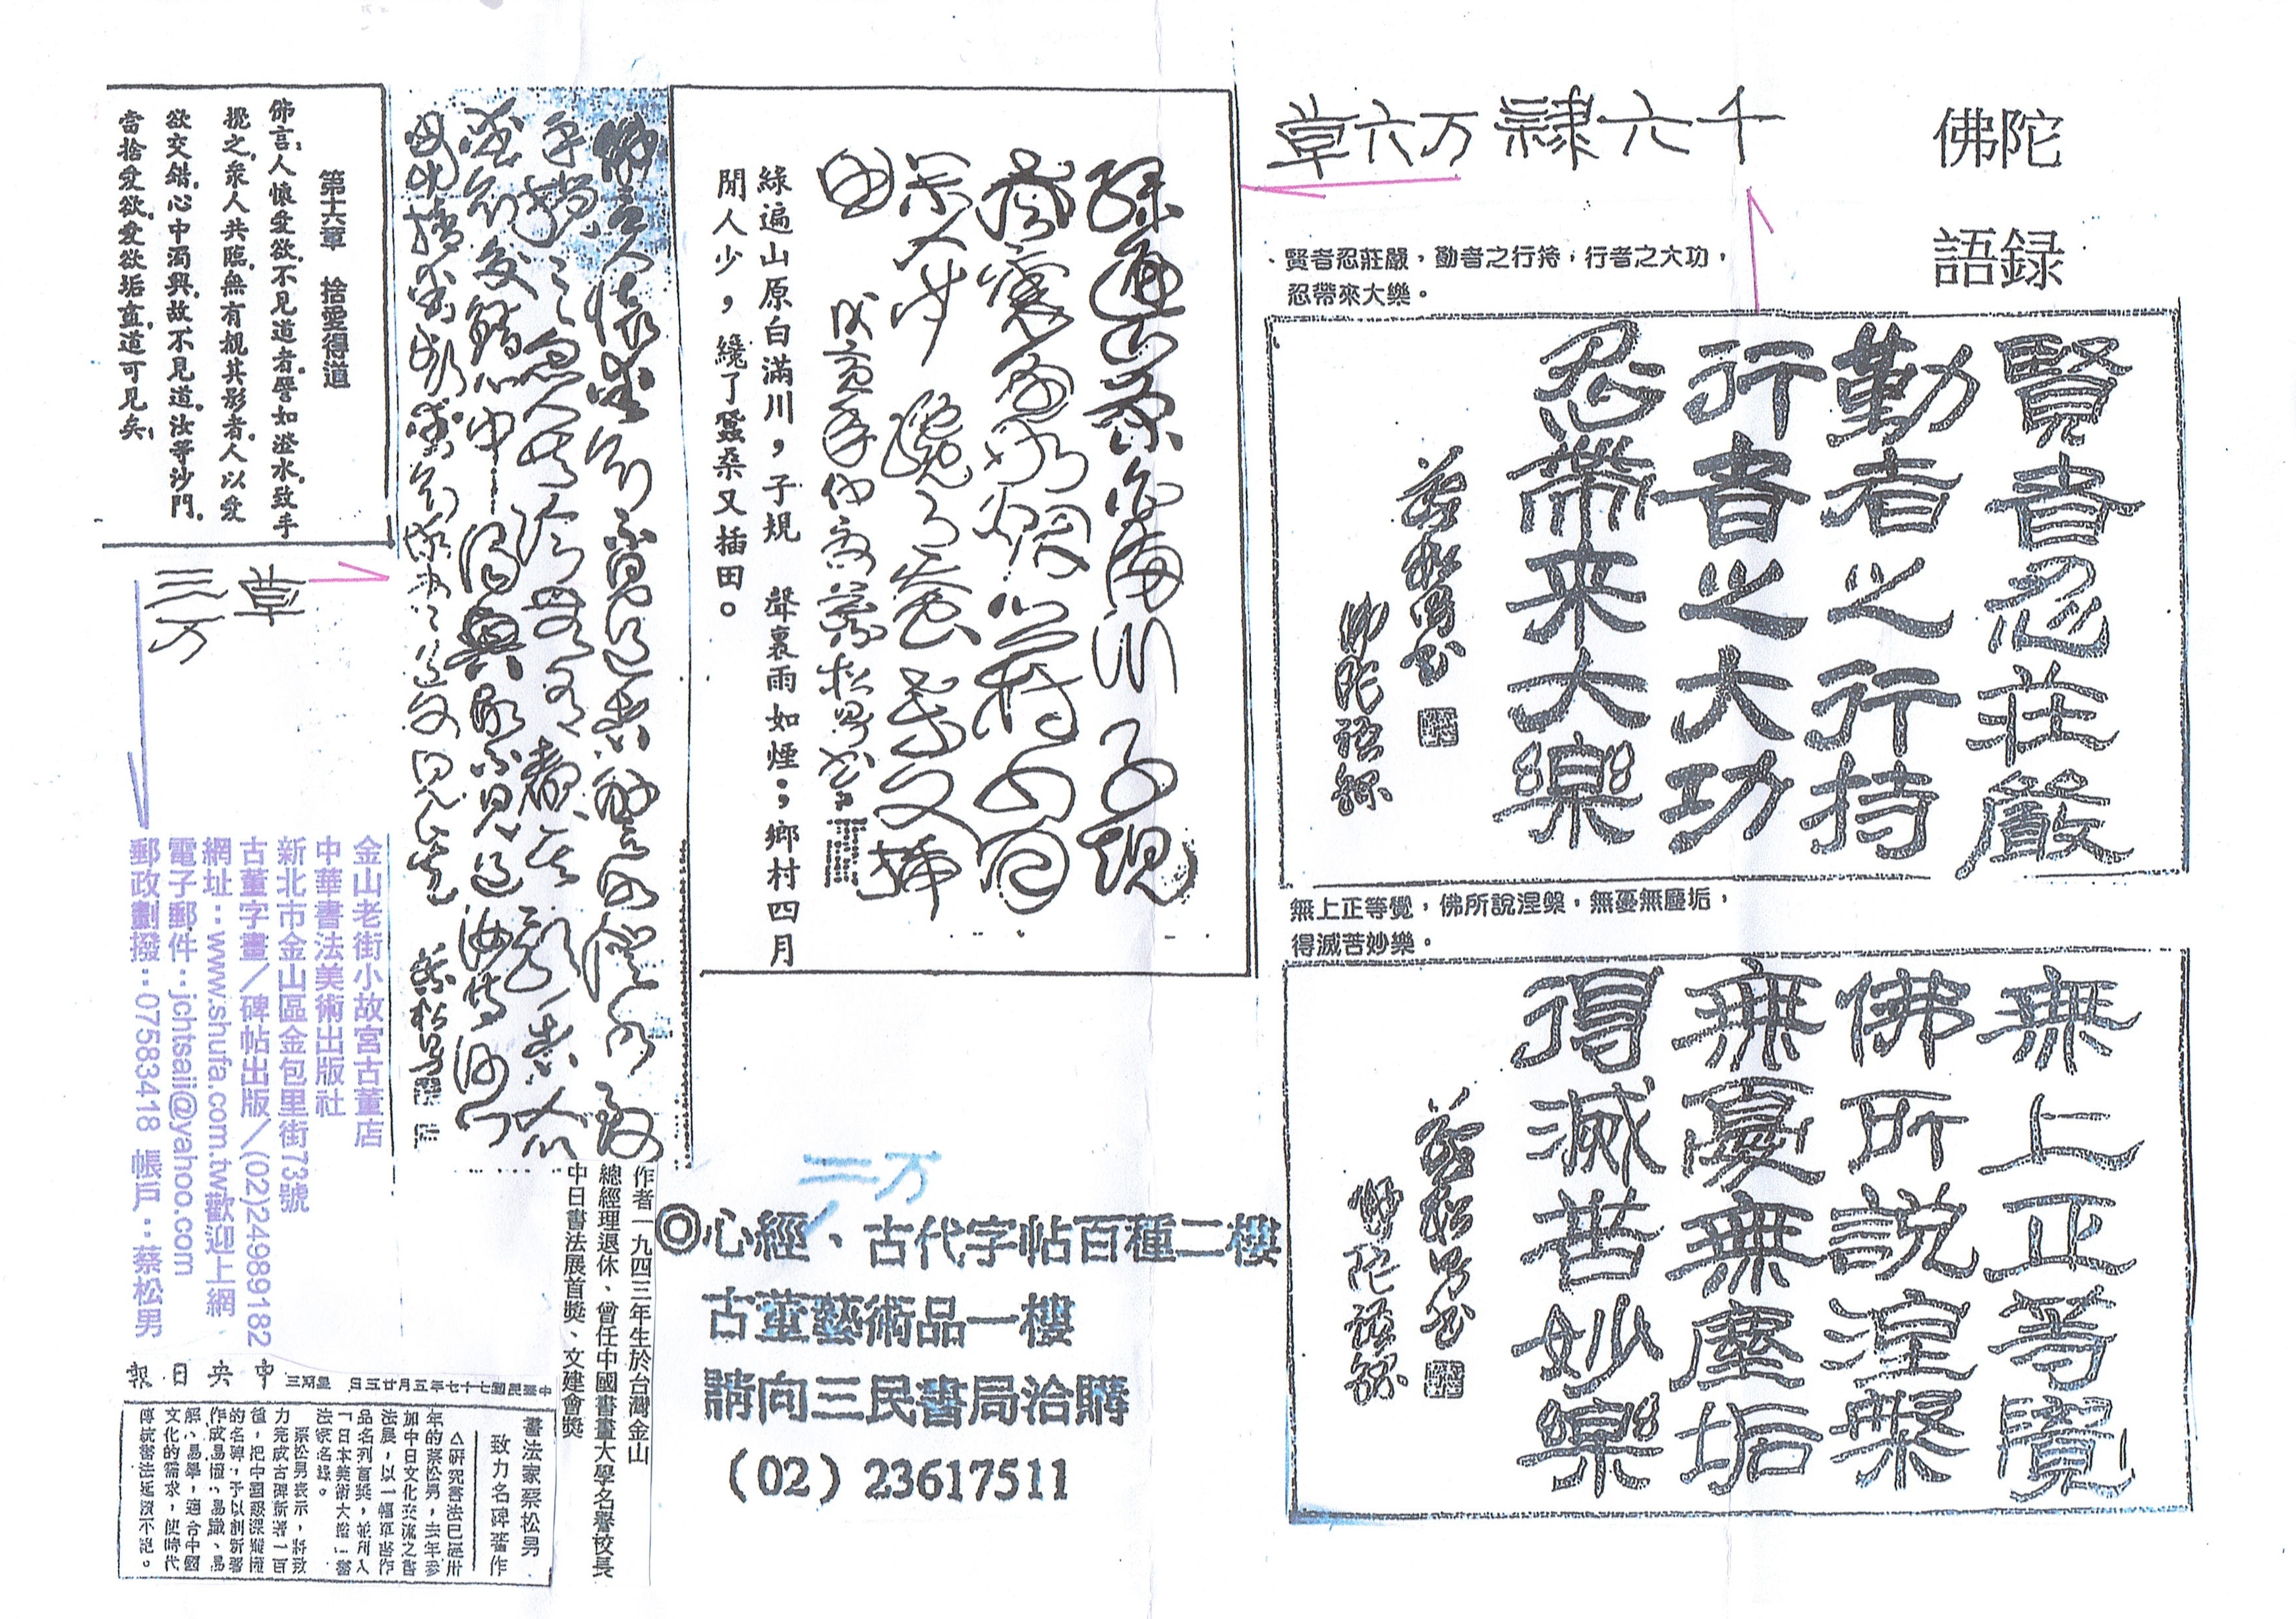 佛陀
語録
千六隸万六草
賢者忍莊嚴，勤者之行持，行者之大功，
忍帶來大樂。
賢者忍莊嚴
勤者之行持
行者之大功
忍帶來大樂
蔡松男書
佛陀語錄
無上正等覺，佛所說涅槃，無憂無塵垢，
得滅苦妙樂。
無上正等覺
佛所說涅槃
無憂無塵垢
得滅苦妙樂
蔡松男書
佛陀語錄
綠遍山原白滿川子規
聲裏雨如煙鄉村四月
閒人少纔了蠶桑又插
田
蔡松男書
綠遍山原白滿川，子規 聲裏雨如煙；鄉村四月
閒人少，纔了蠶桑又插田。
佛言人懷愛欲不見道者譬如澄水致
手攪之眾人共臨無有覩其影者人以
愛欲交錯心中濁興故不見道汝等沙門
蔡松男
第十六章 捨愛得道
佛言：人懷愛欲，不見道者，譬如澄水，致手
攪之，衆人共臨，無有覩其影者，人以愛
欲交錯，心中濁興，故不見道，汝等沙門，
當捨愛欲，愛欲垢盡，道可見矣；
草
三万
金山老街小故宮古董店
中華書法美術出版社
新北市金山區金包里街73號
古董字畫／碑帖出版／(02)24989182
網址：www.shufa.com.tw歡迎上網
電子郵件：jchtsail@yahoo.com
郵政劃撥：07583418 帳戶：蔡松男
二万
◎心經、古代字帖百種二樓
古董藝術品一樓
請向三民書局洽購
（02）23617511
作者一九四三年生於台灣金山
總經理退休、曾任中國書畫大學名譽校長
中日書法展首獎、文建會獎
中央日報
中華民國七十七年五月廿五日 星期三
書法家蔡松男
致力名碑著作
△研究書法已歷卅
年的蔡松男，去年參
加中日文化交流之書
法展，以一幅草書作
品名列首獎，並列入
「日本美術大鑑」書
法家名錄。
蔡松男表示，將致
力完成古碑新著一百
種，把中國艱深難懂
的名碑，予以創新著
作成易懂、易識、易
解、易學，適合中國
文化的需求，使時代
傳統書法延續不絕。